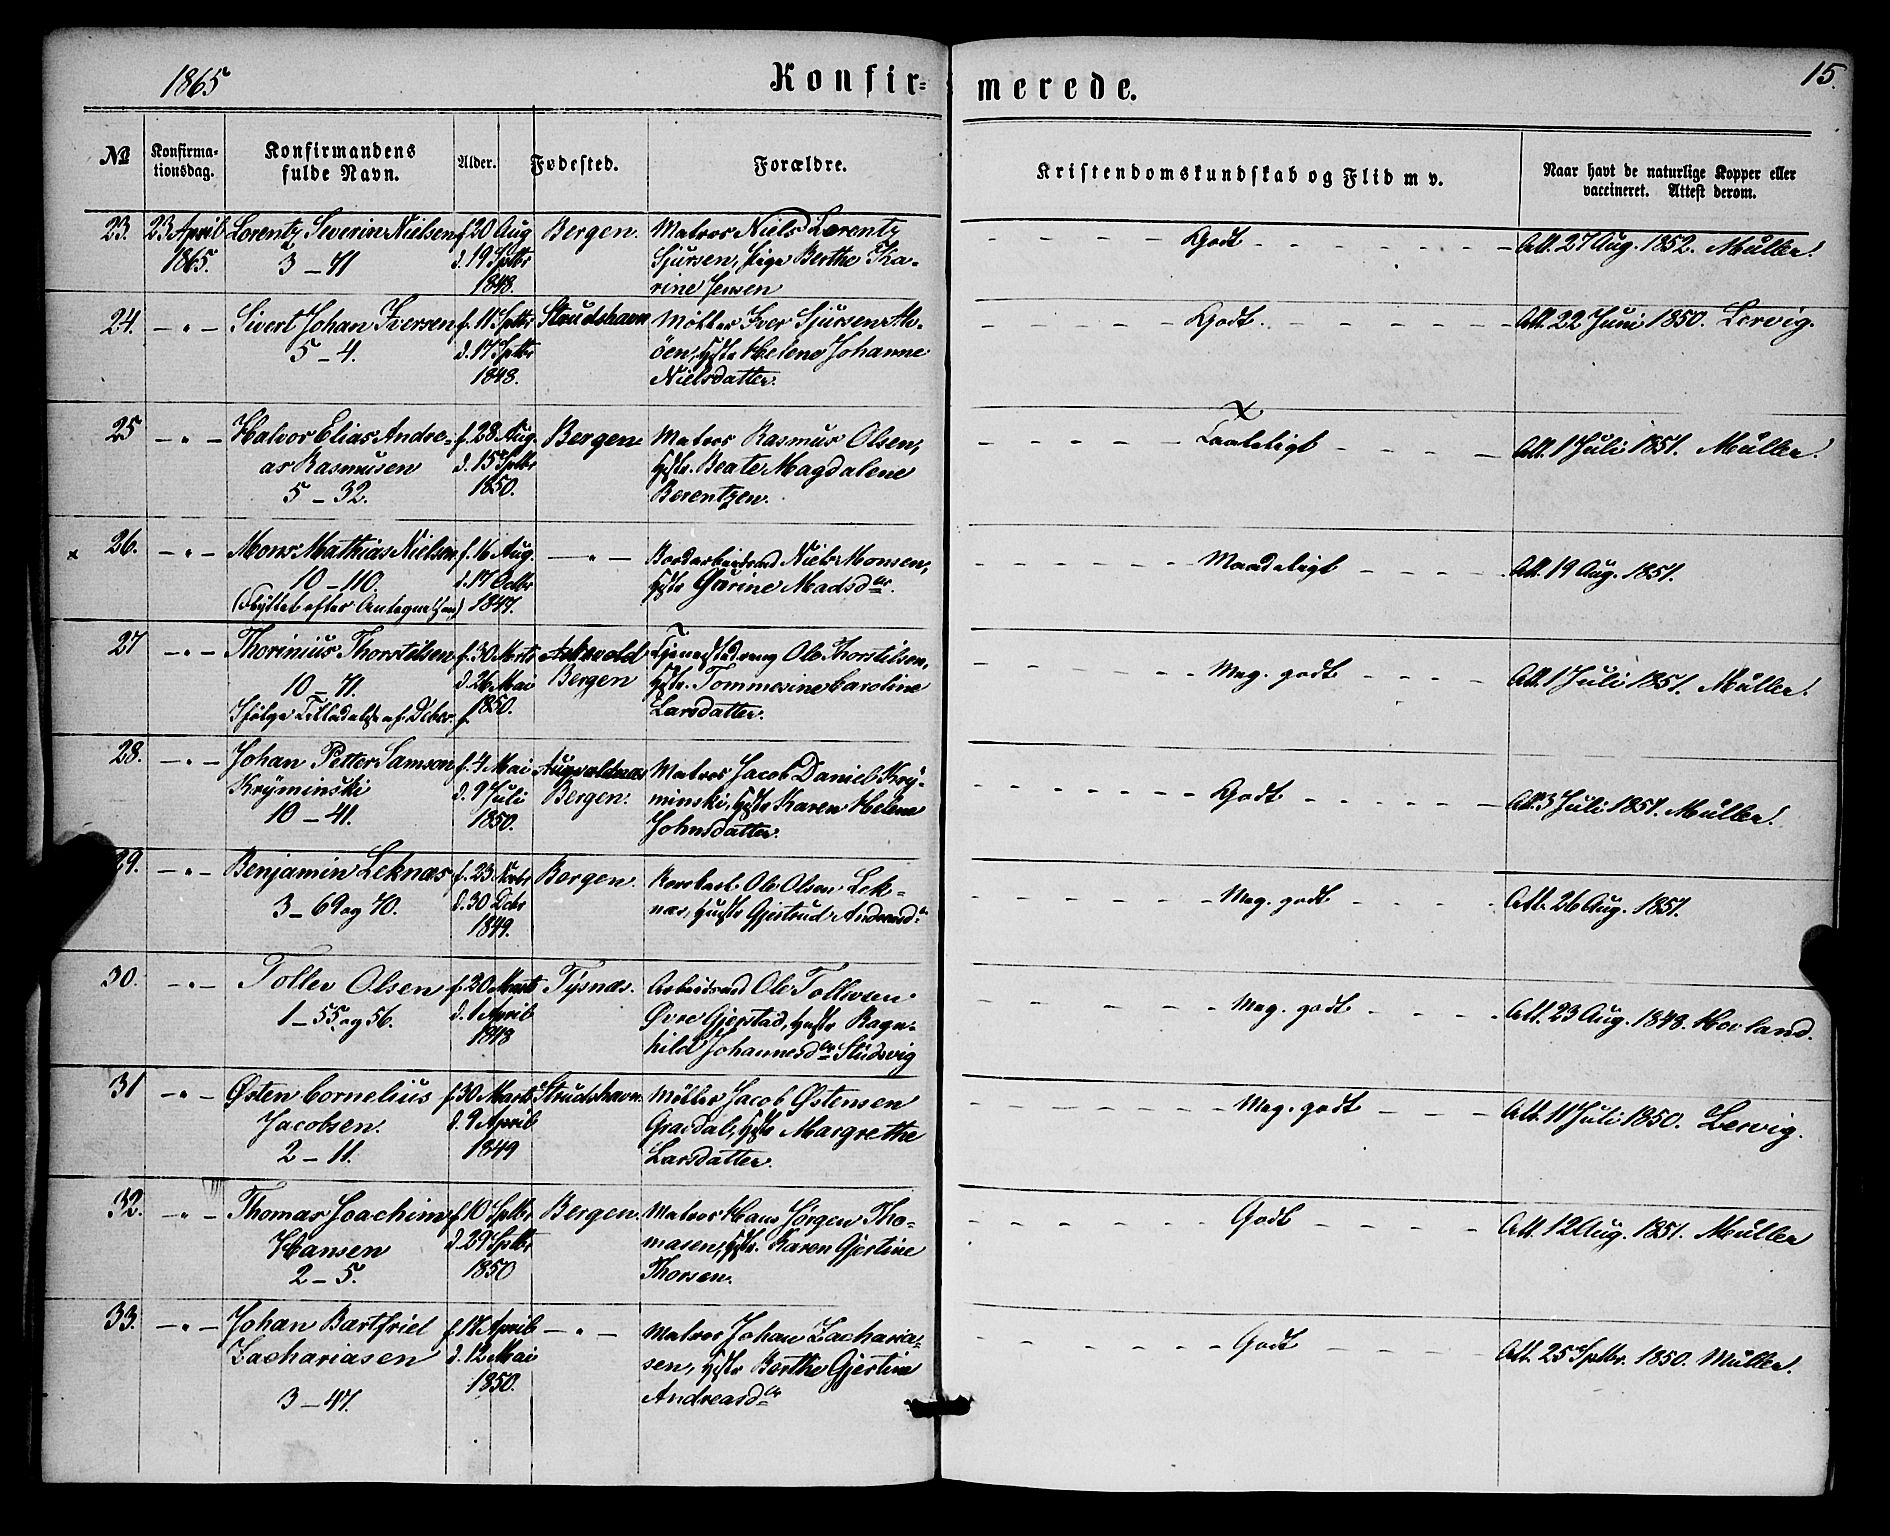 1865
Konfir-
merede.
15.
No
Konfirma-
tionsdag.
Konfirmandens
fulde Navn.
Alder.
Fødested.
Forældre.
Kristendomskundskab og Flid m v.
Naar havt de naturlige Kopper eller
vaccineret. Attest derom.
23. 23 April Lorentz Severin Nielsen f. 20 Aug Bergen. Matros Niels Lorentz - - - - Godt - - - - - - Att. 27 Aug. 1852. Müller.
1865. 3 - 71 d. 19 Sptbr Sjursen, Pige Berthe Tha-
1848. rine Jensen
24. - " - Sivert Johan Iversen f. 11 Sptbr Strudshavn Møller Iver Sjursen - - - - - Godt. - - - - - - Att. 22 Juni 1850. Lervig.
5 - 4. d. 17 Sptbr øen, Hstr Helene Johanne
1848. Nielsdatter.
25 - " - Halvor Elias Andre- f. 28 Aug. Bergen Matros Rasmus Olsen, - - - - Taaleligt - - - - Att. 1 Juli 1851. Müller.
as Rasmusen d. 15 Sptbr Hstr. Beate Magdalene
5 - 32. 1850. Berentzen.
x 26. - " - Mons Mathias Nielsen f. 16 Aug. - " - Niels Monsen, - - - - - - Maadeligt - - - - Att. 19 Aug. 1851.
10 - 110. d. 17 Octbr Hstr Gurine Madsdr.
(Flyttet efter Antegnelsen) 1847.
27 - " - Thorinius Thorstilsen f. 30 Marts Askevold Tjenestedreng Ole Thorstilsen, - - - - - Meg. godt - - - - Att. 1 Juli 1851. Müller.
10 - 71. d. 26 Mai Bergen Hstr. Tommesine Caroline
Ifølge Tilladelse af 1850. Larsdatter.
28. - " - Johan Petter Samson f. 4 Mai Augvaldnæs Matros Jacob Daniel Krÿ- - - - - - - - Godt - - - - - Att. 3 Juli 1851. Müller.
Krÿminski d. 9 Juli Bergen. minski, Hstr Karen Helene
10 - 41. 1850. Johnsdatter.
29. - " - Benjamin Leknæs f. 23 Novbr Bergen. Ole Olsen Lek- - - - - - - Meg. godt - - - - Att. 26 Aug. 1851.
3 - 69 og 70. d. 30 Dcbr næs, Hustr Gjertrud Andreasdr
1849.
30. - " - Tollev Olsen f. 20 Marts Tÿsnæs. Arbeidsmd Ole Tollevsen - - - - - Meg. godt - - - - Att. 23 Aug. 1848. Hovland.
1 - 55 og 56. d. 1 April Øvre Gjerstad, Hustr Ragn-
1848 hild Johannesdr Studsvig
31 - " - Østen Cornelius f. 30 Marts Strudshavn. Møller Jacob Østensen - - - - - - - Meg. godt - - - - Att. 11 Juli 1850. Lervig.
Jacobsen. d. 9 April Grasdal, Hstr Margrethe
2 - 11. 1849 Larsdatter.
32. - " - Thomas Joachim f. 10 Sptbr Bergen. Matros Hans Jørgen Tho- - - - - - - Godt - - - - - Att. 12 Aug. 1851. Müller
Hansen d. 29 Sptbr masen, Hstr. Karen Gjertine
2 - 5. 1850 Thorsen.
33. - " - Johan Bartfriel f. 18 April - " - Matros Johan Zacharia- - - - - - - Godt - - - - - Att. 25 Sptbr. 1850. Müller.
Zachariasen d. 12 Mai sen, Hstr Berthe Gjertine
3 - 47. 1850. Andreasdr